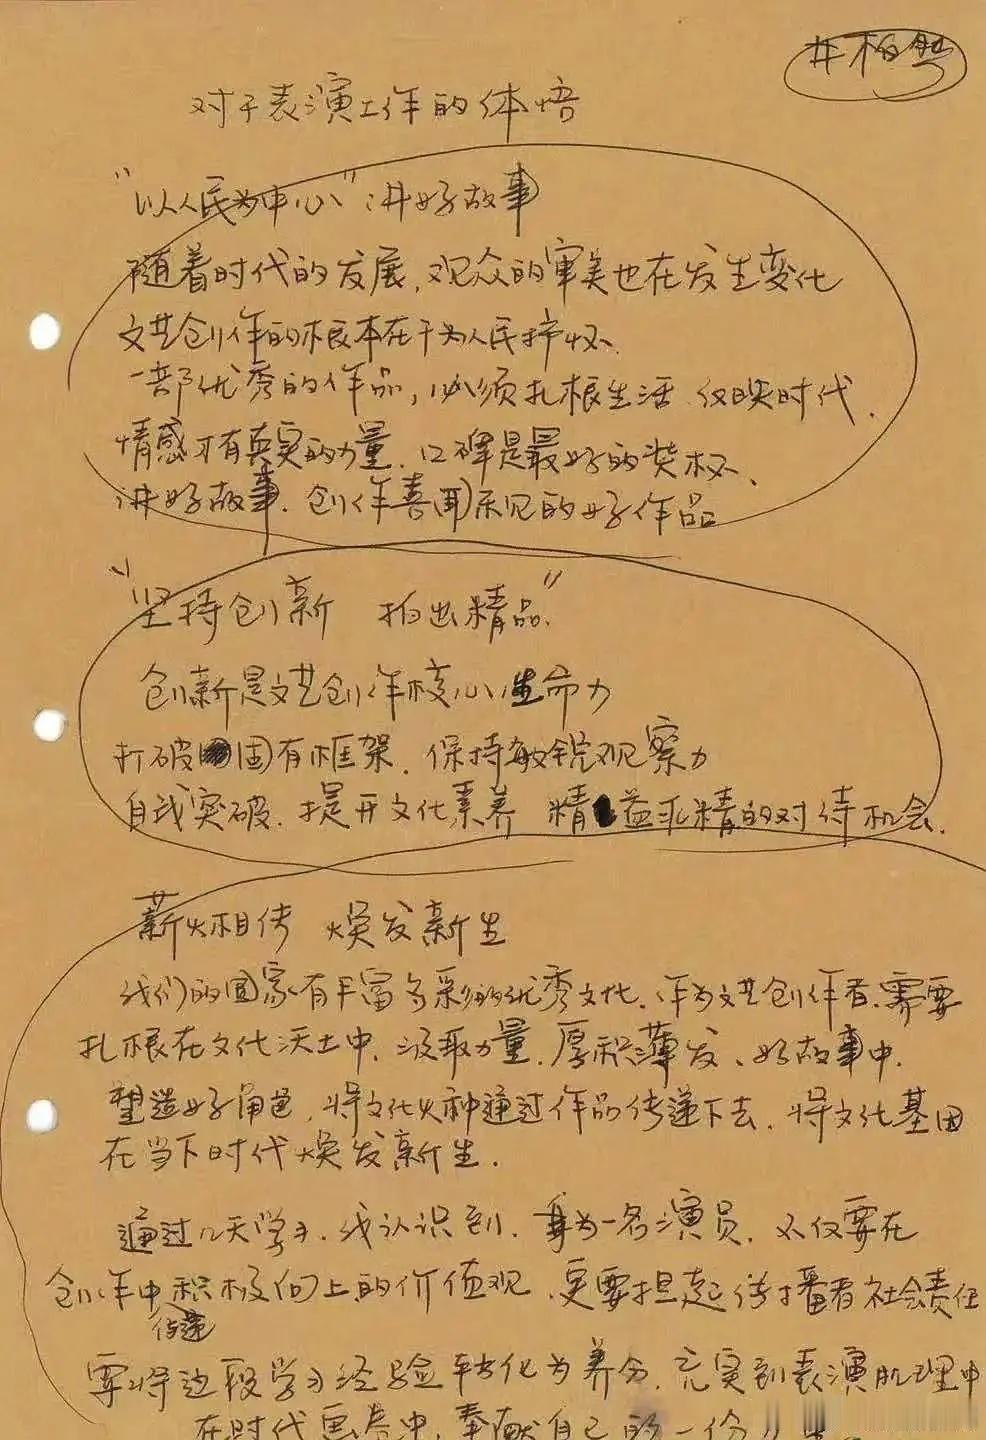 井柏然
对于表演工作的体悟
"以人民为中心"讲好故事
随着时代的发展,观众的审美也在发生变化
文艺创作的根本在于为人民抒怀、
一部优秀的作品,必须扎根生活、反映时代,
情感才有真实的力量,口碑是最好的奖杯、
讲好故事、创作喜闻乐见的好作品
"坚持创新 拍出精品"
创新是文艺创作核心生命力
打破固有框架、保持敏锐观察力
自我突破、提升文化素养 精益求精的对待机会、
薪火相传 焕发新生
我们的国家有丰富多彩的优秀文化、作为文艺创作者、需要
扎根在文化沃土中、汲取力量、厚积薄发、好故事中、
塑造好角色,将文化火种通过作品传递下去、将文化基因
在当下时代焕发新生、
通过几天学习、我认识到、身为一名演员、不仅要在
创作中传递积极向上的价值观、更要担起传播者社会责任
要将这段学习经验转化为养分、充实到表演肌理中
在时代画卷中,奉献自己的一份